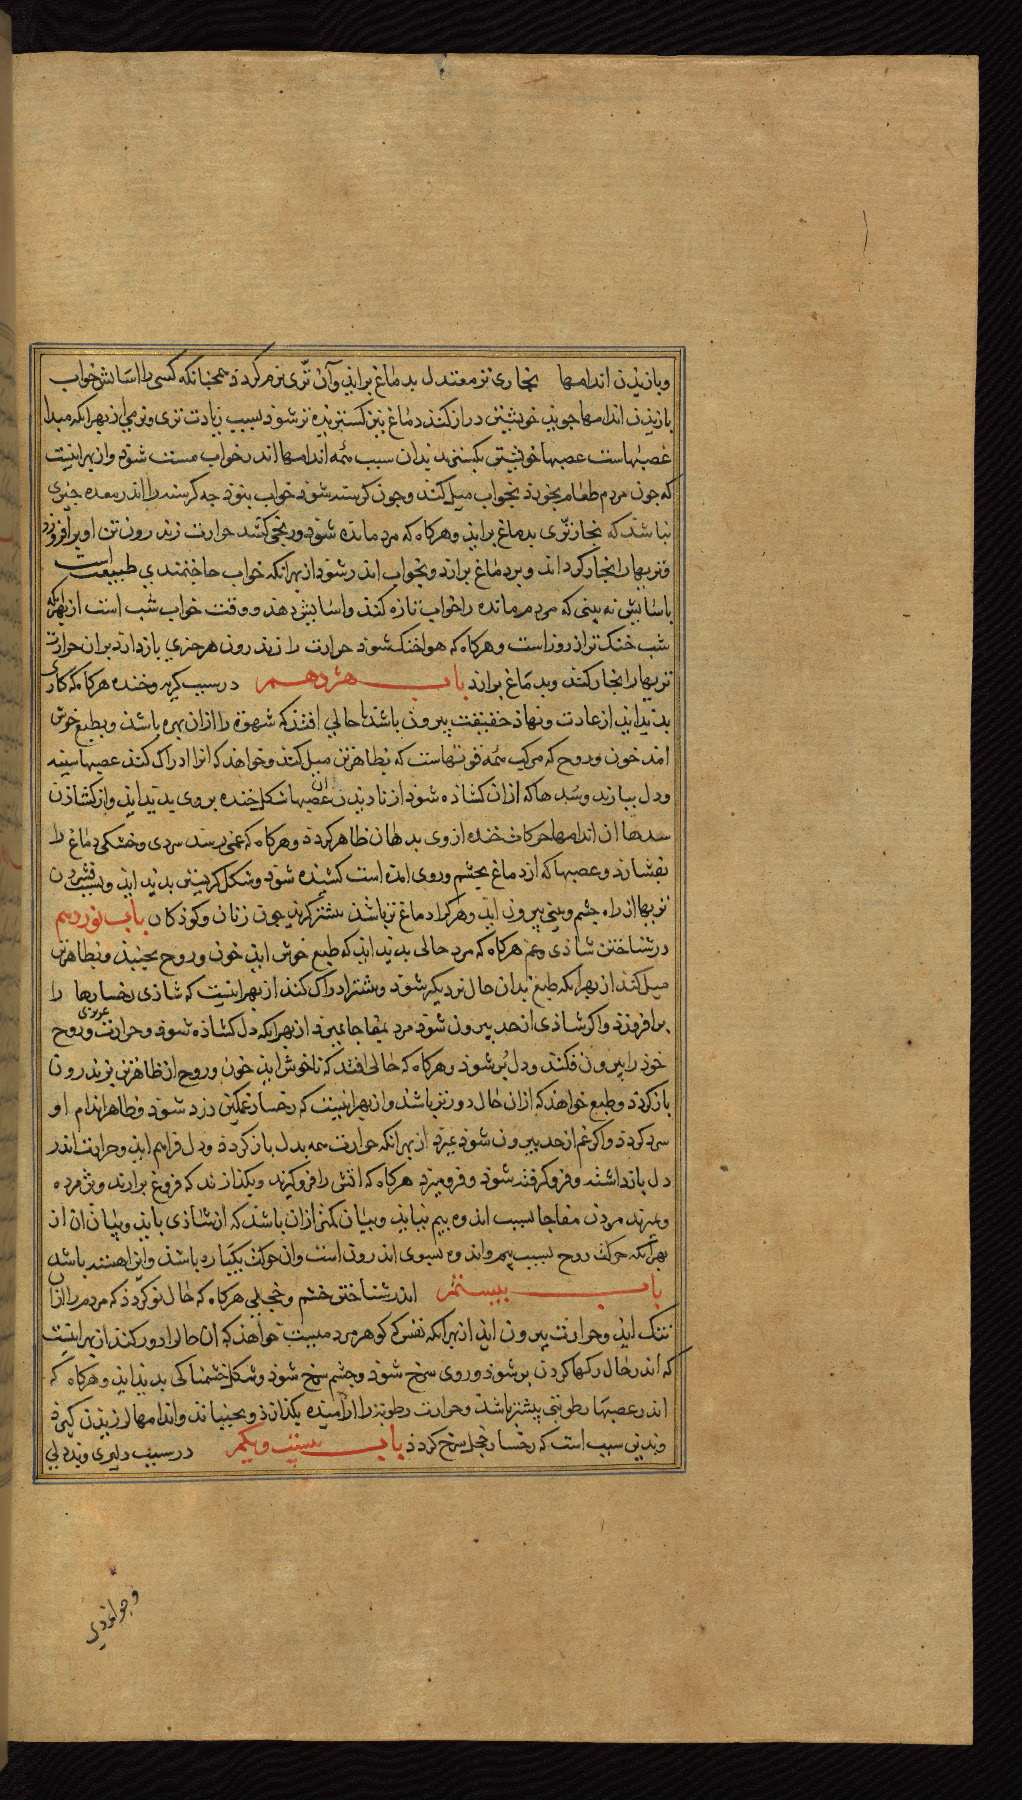 و بازیدن اندامها بخاری تر معتدل بدماغ برایذ و آن تری نرم کردذ همچنانکه کسی را آسایش خواب
بازیدن اندامها جویذ خویشتن دراز کند دماغ نیز کسترنیده تر شوذ بسبب زیادت تری و نرمی از بهر آنکه مبدا
عصبهاست عصبها خویشتن بکسترند بدان سبب همه اندامها اندر خواب سست شوذ و از بهر اینست
که چون مردم طعام بخورذ بخواب میل کند و چون کرسنه شوذ خواب بشوذ چه کرسنه را اندر معده چیزی
نباشد که بخار تری بدماغ برایذ و هرکاه که مرد مانده شوذ و رنجی کشد حرارت زندرون تن او برافروزد
و تریها را بخار کرداند و بر دماغ براند و بخواب اندر شود از بهر آنکه خواب حاجتمندی طبیعت است
باسایش نه بینی که مردم مانده را خواب تازه کند و اسایش دهد و وقت خواب شب است از بهر آنکه
شب خنک تر از روز است و هرکاه که هوا خنک شوذ حرارت را زندرون هر چیزی بازدارد بران حرارت
تریها را بخار کند و بدماغ براند باب هژدهم در سبب کریه و خنده هرکاه که کاری
بدیدایذ از عادت و نهاد حقیقت بیرون باشد تا حالی افتد که شهوة را ازان بهره باشد و بطبع خوش
امد خون و روح که مرکب همه قوتهاست که بظاهر تن میل کند و خواهد که انرا ادراک کند عصبها سینه
و دل بیازد و سدها که ازان کشاده شوذ از نادیدن ان عصبها شکل خنده بروی بدیدایذ و از کشادن
سدها ان اندامها حرکات خنده از وی بدهان ظاهر کردذ و هرکاه که غمی رسد سردی و خشکی دماغ را
بفشارد و عصبها که از دماغ بچشم و روی امده است کشیده شوذ و شکل کریستن بدیدایذ و بسبب فشردن
تریها از راه چشم و بینی بیرون ایذ و هرکرا دماغ تر باشذ بیشتر کرید چون زنان و کوذکان باب نوزدهم
در شناختن شاذی و غم هرکاه که مرد حالی بدیدایذ که طبع خوش ایذ خون و روح بجنبذ و بظاهر تن
میل کند از بهر آنکه طبع بدان حال نزدیکتر شوذ و بیشتر ادراک کند از بهر اینست که شاذی رخسارها را
برافروزذ و اکر شاذی از حد بیرون شوذ مرد بمفاجا بمیرد از بهر آنکه دل کشاده شوذ و حرارت غریزی و روح
خوذ را بیرون فکند و دل پر شوذ و هرکاه که حالی افتد که ناخوش ایذ خون و روح از ظاهر تن بزندرون
بازکردذ و طبع خواهد که ازان حال دورتر باشد و از بهر اینست که رخسار غمکین زرد شوذ و ظاهر اندام او
سرد کردذ و اکر غم از حد بیرون شوذ بمیرد از بهر آنکه حرارت همه بدل بازکردذ و دل فراهم ایذ و حرارت اندر
دل بازداشته و فروکرفته شوذ و فرومیرد هرکاه که اتش را فروکیرند و بکذارند که فروغ برارند و پژمرده
و بمیرند مردن مفاجا بسبب اندوه بیم نیاید و بیان کمتر ازان باشد که از شاذی باید و بیان ان از
بهر آنکه حرکت روح بسبب بیم و اندوه بسوی اندرون است و ان حرکت یکباره باشد و این اهسته باشد
باب بیستم اندر شناختن خشم و خجلی هرکاه که حال نو کردذ که مردم را ازان
ننک ایذ و حرارت بیرون ایذ از بهر آنکه نفس که کوهر مردمیست خواهد که ان حال را دور کند از بهر اینست
که اندر حال رکها کردن پر شوذ و روی سرخ شوذ و چشم سرخ شوذ و شکل خشمناکی بدیدایذ و هرکاه که
اندر عصبها رطوبتی بیشتر باشد و حرارت رطوبت را ارامیده بکذارد و بجنباند و اندامها لرزیدن کیرذ
و بدین سبب است که رخسار خجل سرخ کردذ باب بیست و یکم در سبب دلیری و بددلی
و جوانمردی